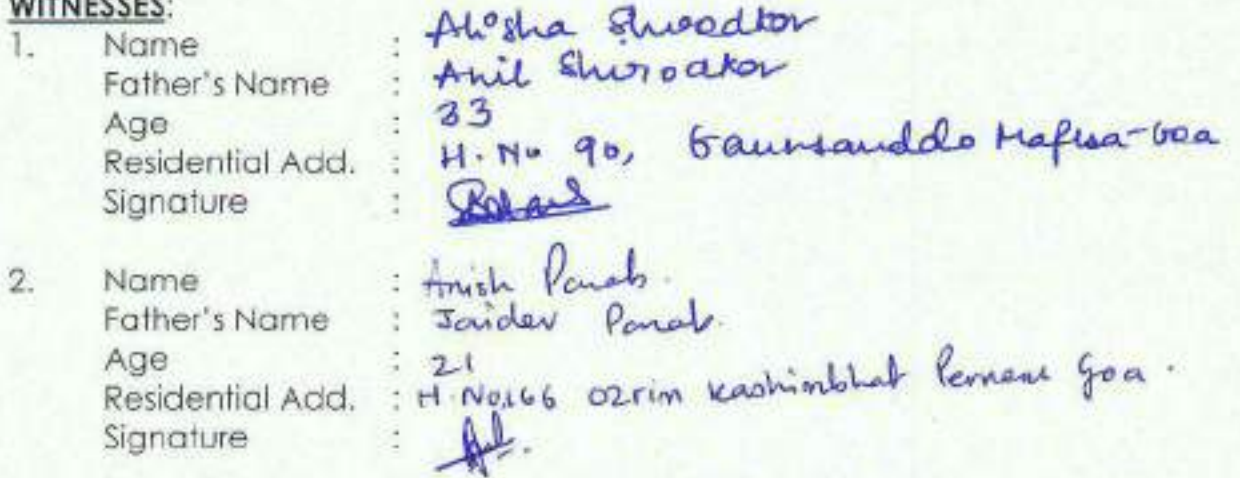 WITNESSES:
1. Name : Alisha Shirodkar
Father's Name : Anil Shirodkar
Age : 33
Residential Add. : H. No 90, Gaunsanddo Mapusa-Goa
Signature :
2. Name : Anish Parab.
Father's Name : Jaidev Parab.
Age : 21
Residential Add. : H. No.166 Ozrim Kashimbhat Pernem Goa.
Signature :